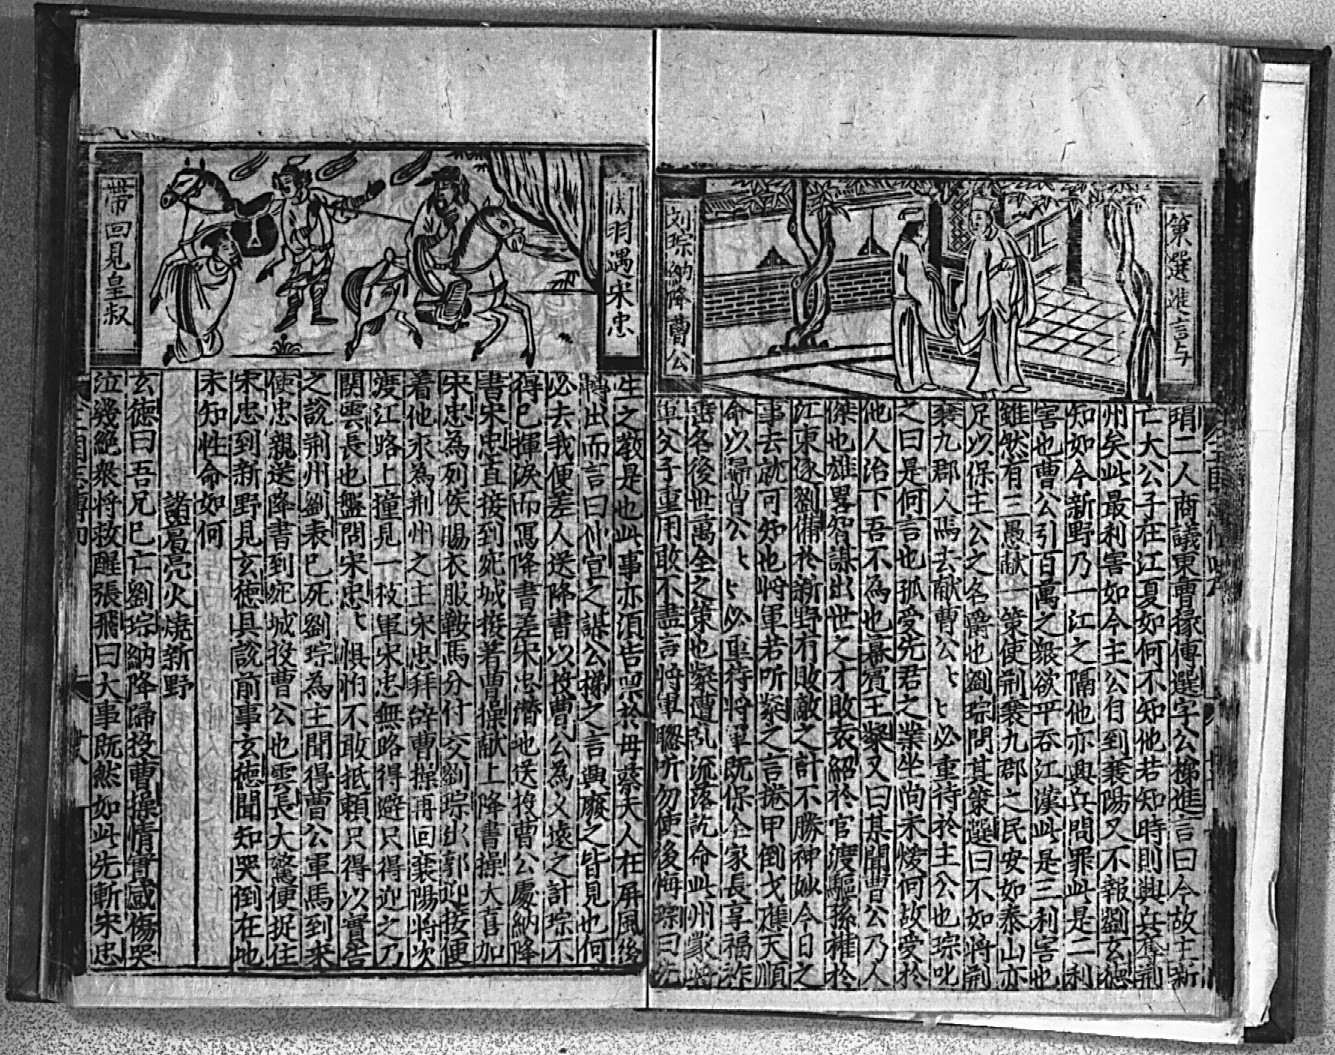 第選進言与
刘琮納降曹公
琩二人商議東曹掾傅選字公悌進言曰今故主新
亡大公子在江夏如何不知他若知時則興兵奪荆
州矣此最利害如今主公自到襄陽又不報劉玄德
知如今新野乃一江之隔他亦興兵問罪此是二利
害也曹公引百萬之衆欲平吞江漢此是三利害也
雖然有三愚献一策使荆襄九郡之民安如泰山亦
足以保主公之名爵也劉琮問其策選曰不如將荆
襄九郡人馬去献曹公公必重待於主公也琮叱
之曰是何言也孤受先君之業坐尚未煖何故受於
他人治下吾不為也幕賓王粲又曰某聞曹公乃人
傑也雄畧智謀出世之才敗袁紹於官渡驅孫權於
江東逐劉備於新野有敗敵之計不勝神妙今日之
事去就可知也將軍若听粲之言捲甲倒戈應天順
命以歸曹公公必重待將軍既保全家長享福祚
垂名後世萬全之策也粲遭乱流落託命此州蒙將
軍父子重用敢不盡言將軍聰听勿使後悔琮曰先
関羽遇宋忠
帶回見皇叔
生之教是也此事亦須告禀於母蔡夫人在屏風後
轉出而言曰仲宣之謀公悌之言興廢之皆見也何
必去我便差人送降書以投曹公為久遠之計琮不
得已揮淚而寫降書差宋忠潛地送投曹公處納降
書宋忠直接到宛城投着曹操献上降書操大喜加
宋忠為列侯賜衣服鞍馬分付交劉琮出郭迎接便
着他永為荆州之主宋忠拜辞曹操再回襄陽將次
渡江路上撞見一枝軍宋忠無路得避只得迎之乃
関雲長也盤問宋忠忠惧怕不敢抵賴只得以實告
之說荆州劉表已死劉琮為主聞得曹公軍馬到來
使忠親送降書到宛城投曹公也雲長大驚便捉住
宋忠到新野見玄德具說前事玄德聞知哭倒在地
未知性命如何
諸葛亮火燒新野
玄德曰吾兄已亡劉琮納降歸投曹操情實感傷哭
泣幾絕衆將救醒張飛曰大事既然如此先斬宋忠